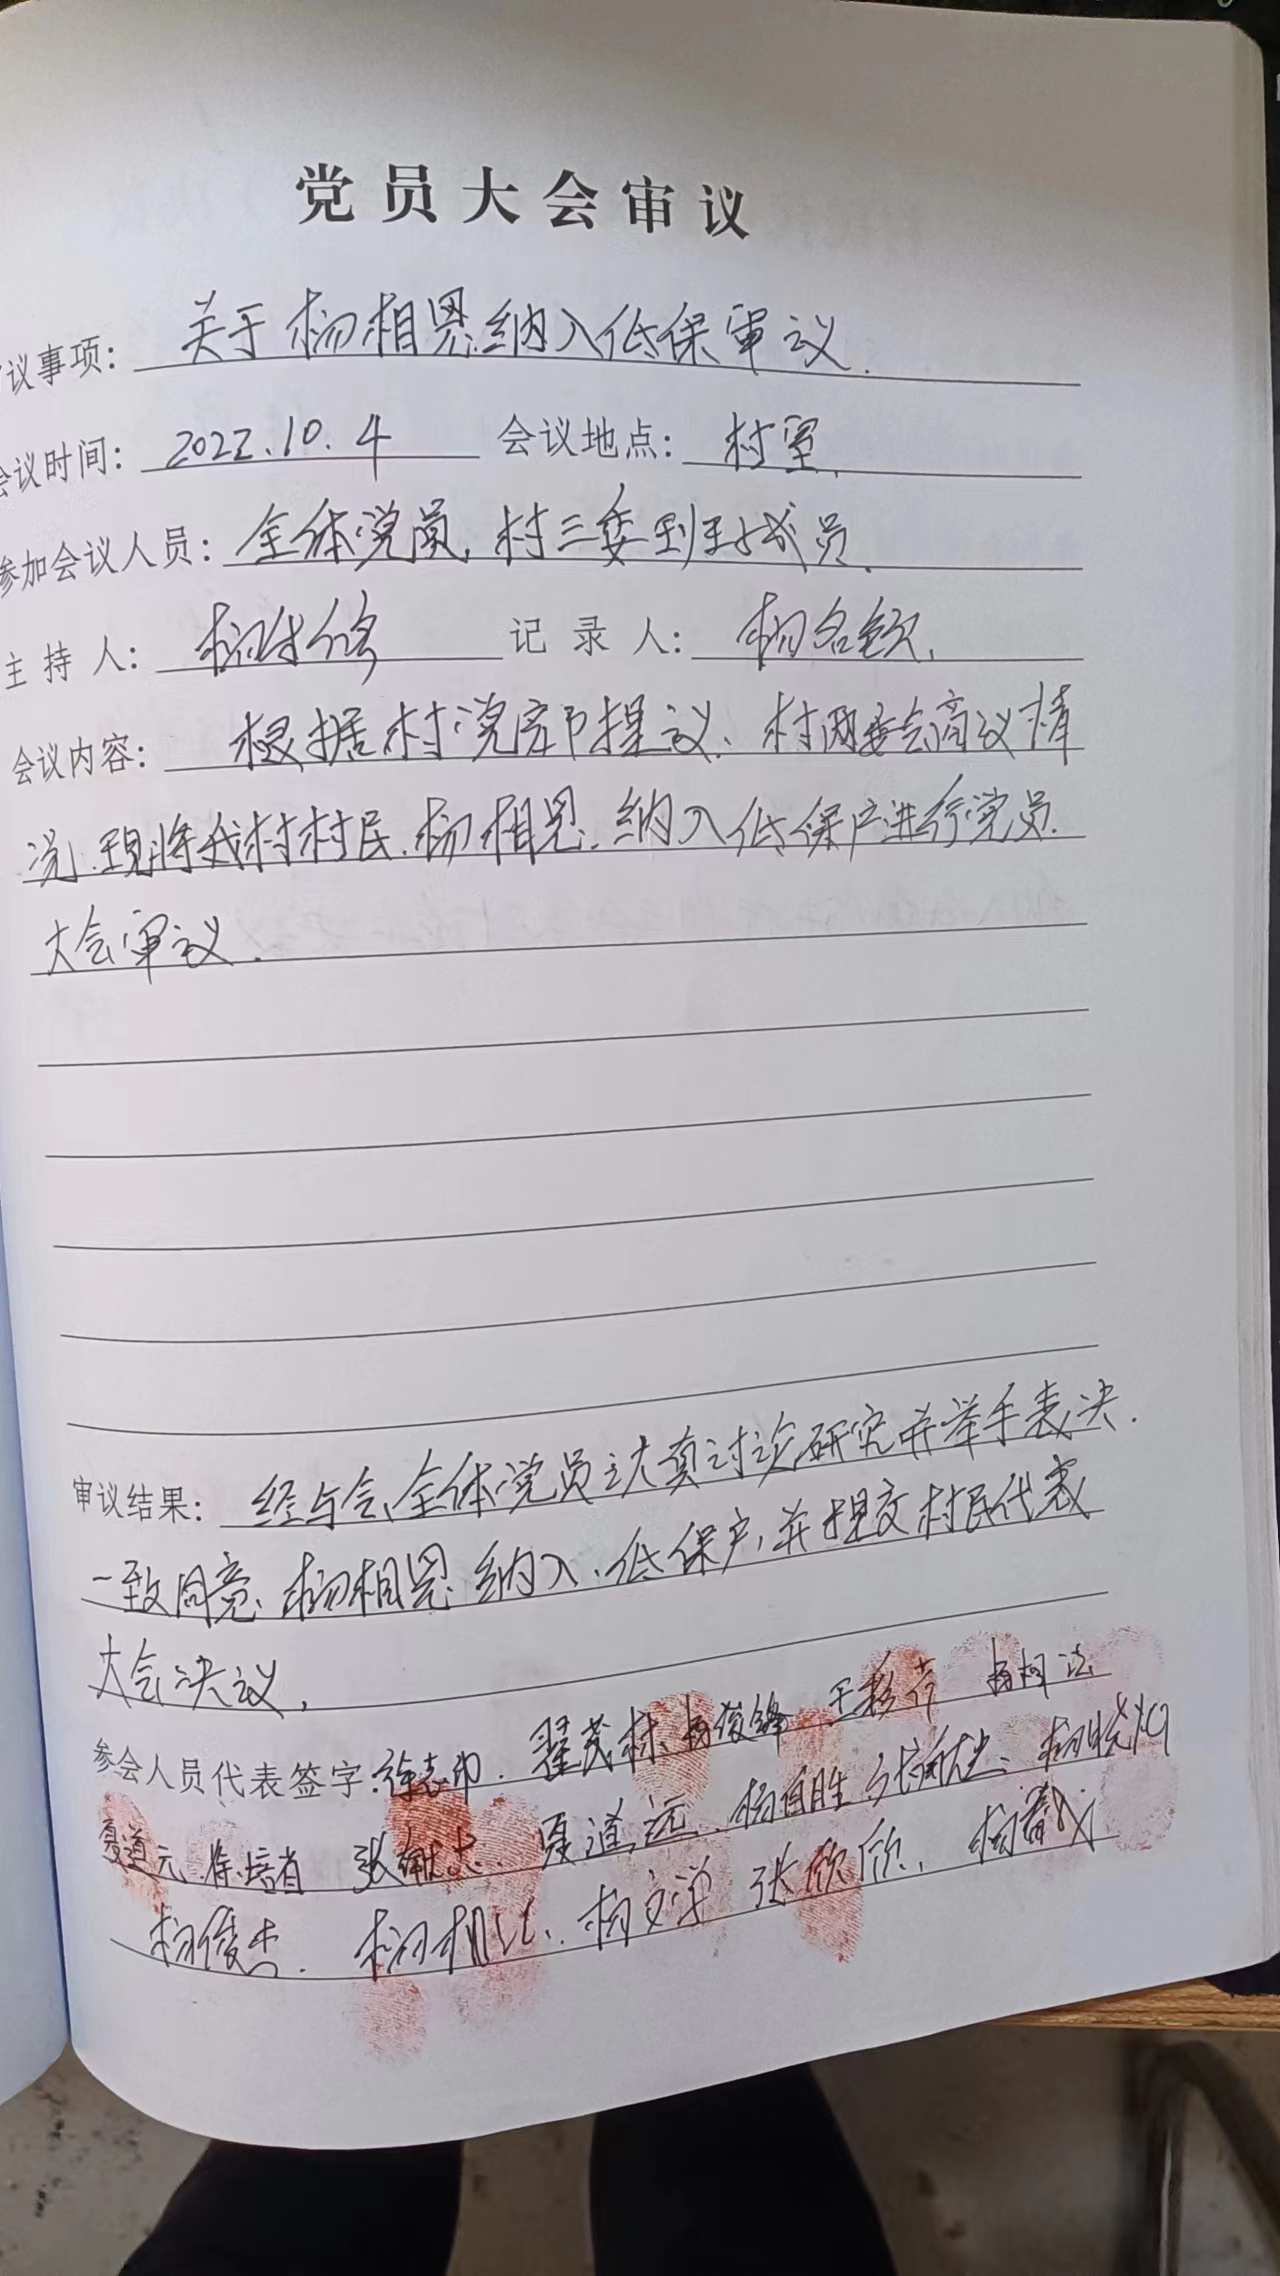 党员大会审议
议事项：关于杨相恩纳入低保审议.
会议时间：2022.10.4 会议地点：村室.
参加会议人员：全体党员，村三委班子成员.
主持人： 记录人：杨名钦.
会议内容：根据村党支部提议、村两委会商议情
况，现将我村村民.杨相恩.纳入低保户进行党员.
大会审议.
审议结果：经与会全体党员认真讨论研究并举手表决.
一致同意、杨相恩纳入低保户，并提交村民代表
大会决议，
参会人员代表签字：徐志印. 翟茂林 杨俊锋 王彩萍
夏道元 徐培省 张献忠. 夏道远. 杨自胜
杨俊杰. 张欣欣.